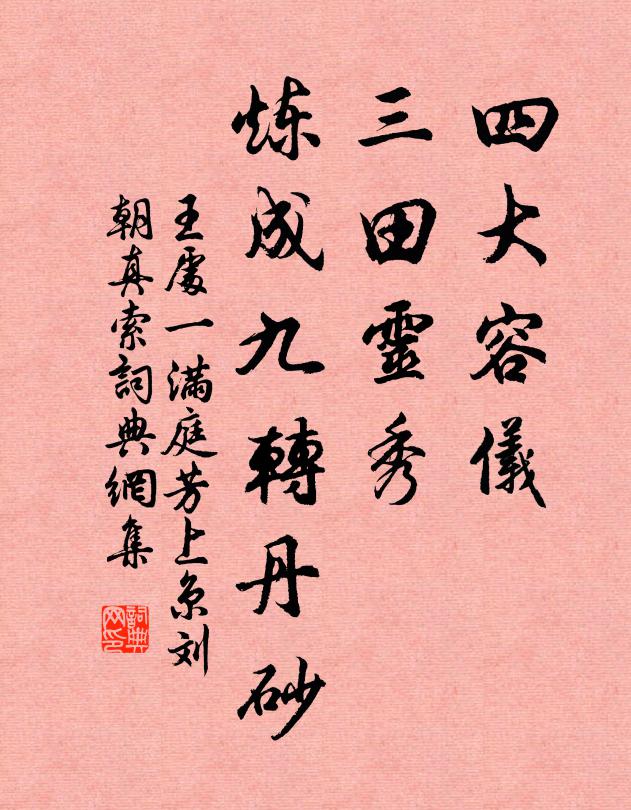 四大容儀
三田靈秀
炼成九轉丹砂
王處一滿庭芳上京刘
朝真索詞典網集
詞典网印